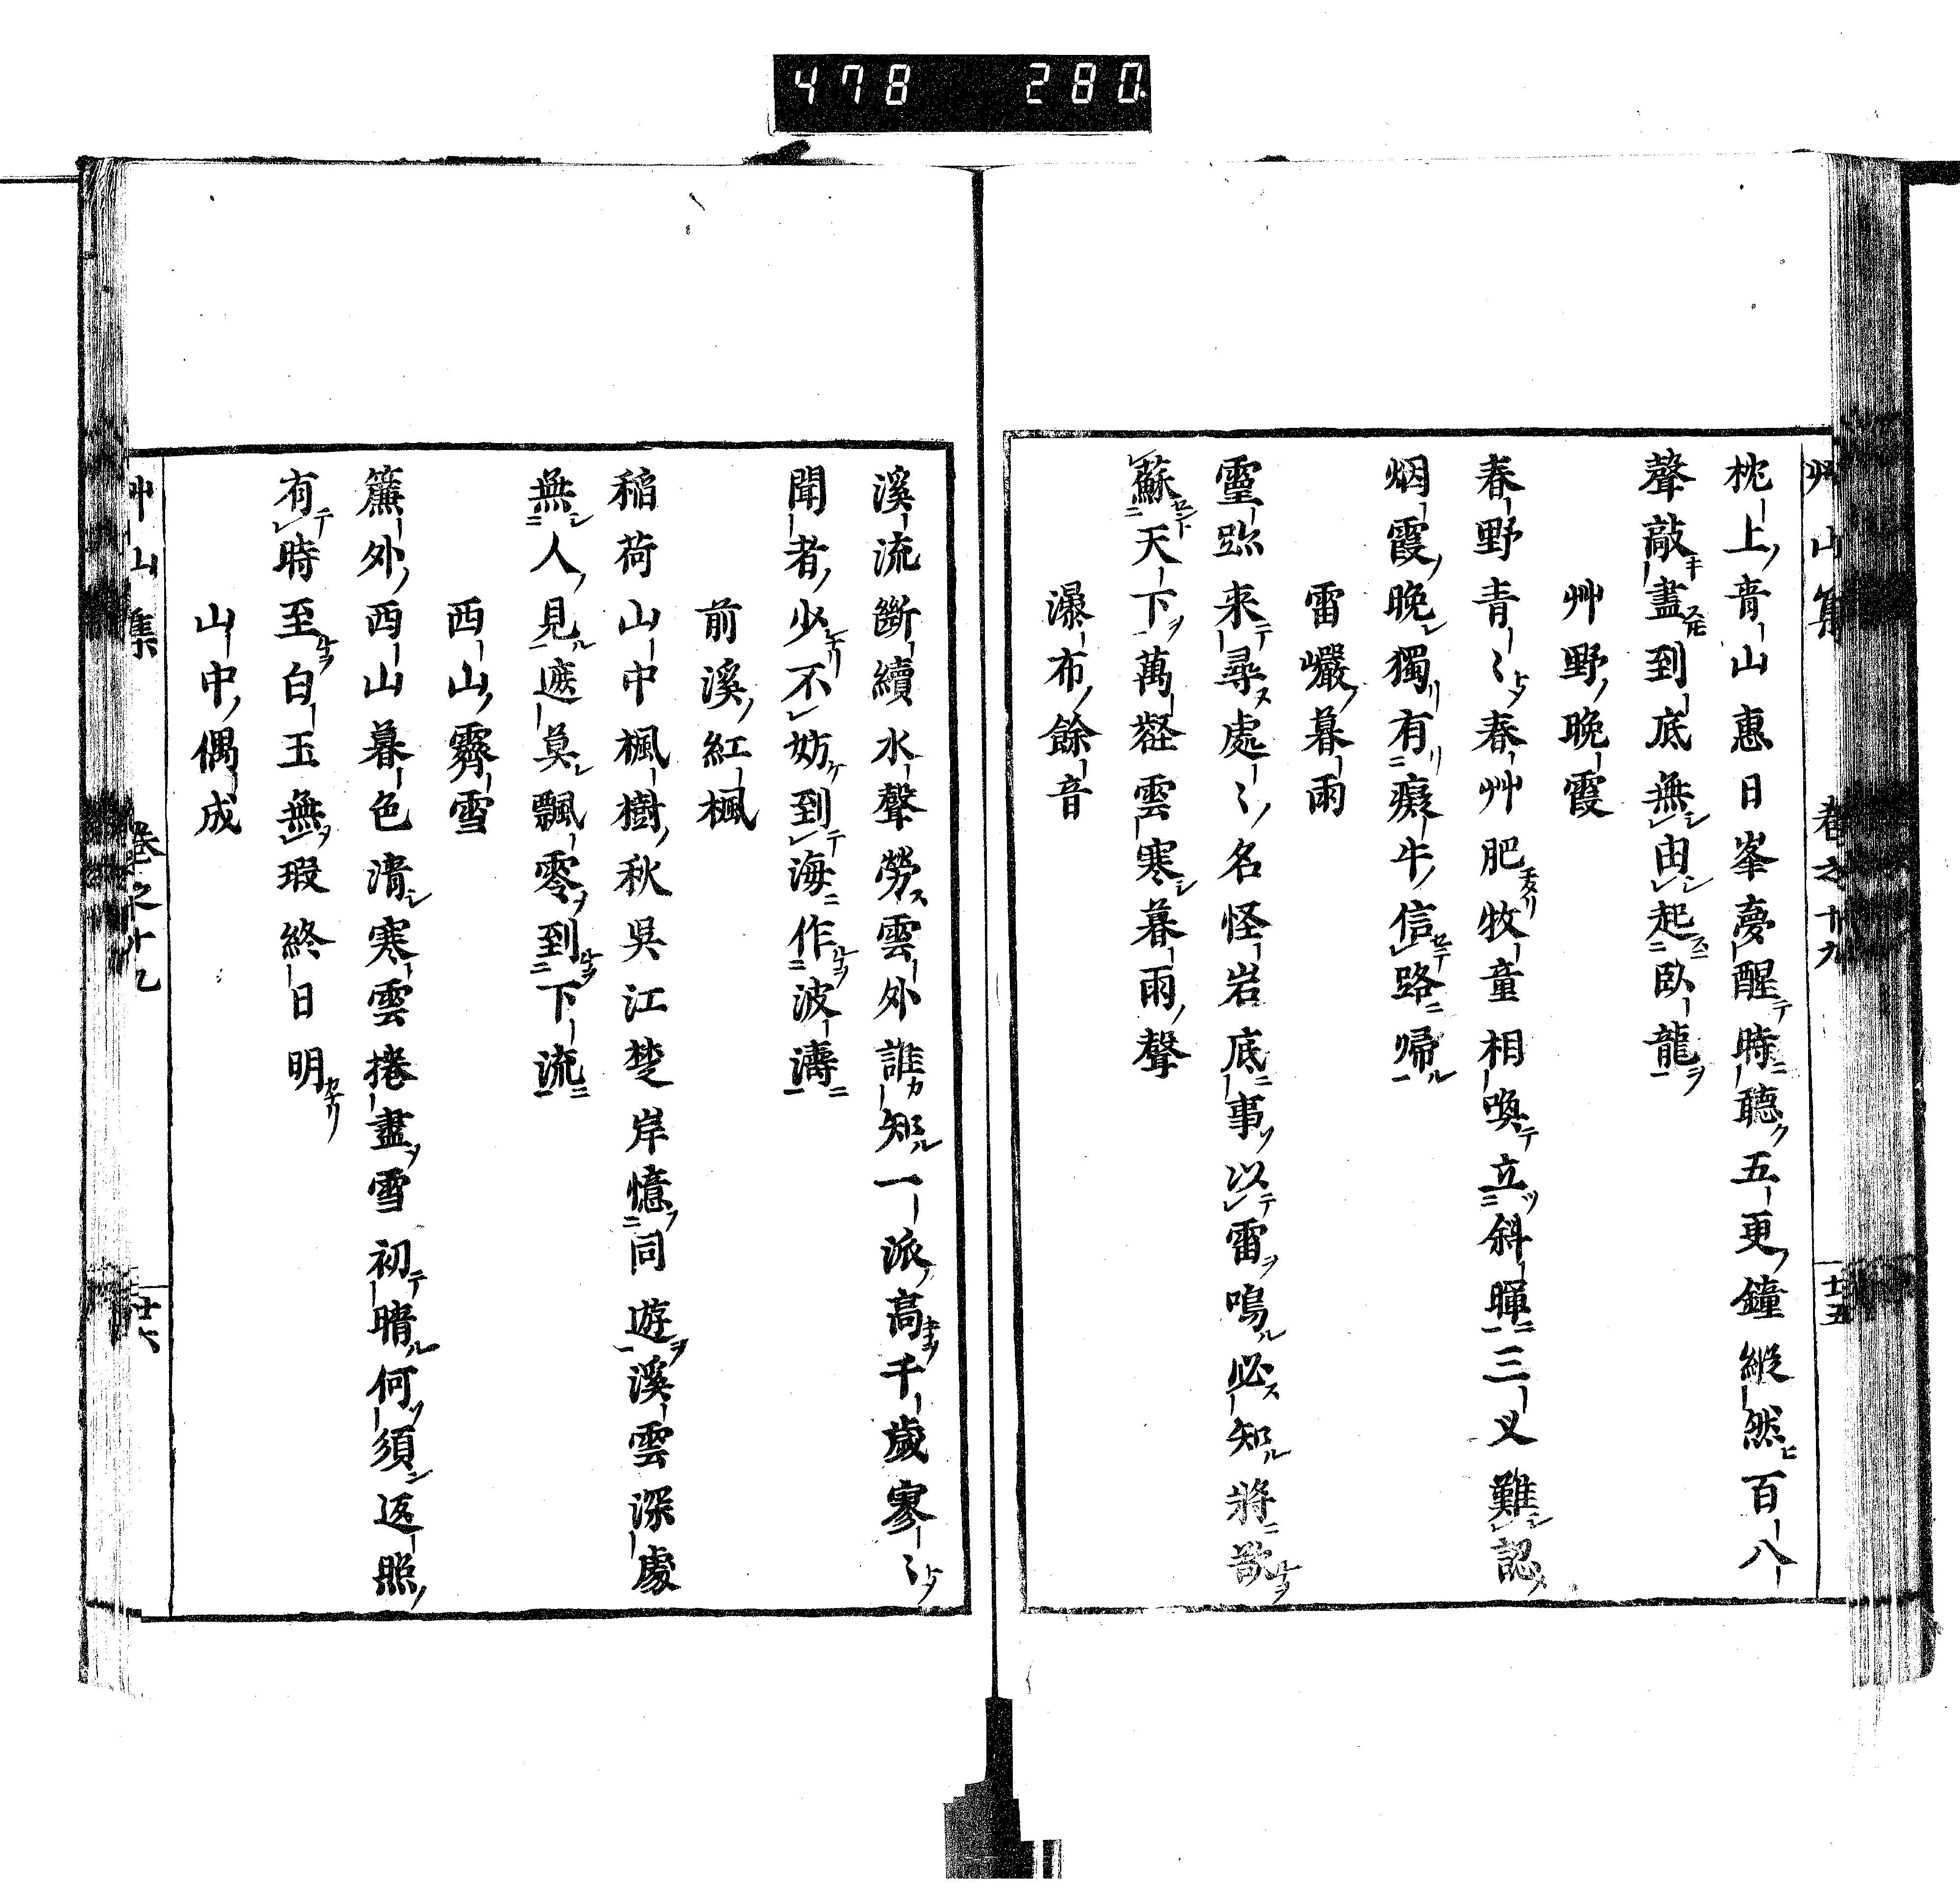 478 280
艸山集 卷之十九 廿五
枕上青山惠日峯夢醒時聽五更鐘縱然百八
聲敲盡到底無由起臥龍
艸野晚霞
春野青〻春艸肥牧童相喚立斜暉三叉難認
烟霞晚獨有癡牛信路歸
雷巖暮雨
靈跡来尋處〻名怪岩底事以雷鳴必知將欲
蘇天下萬壑雲寒暮雨聲
瀑布餘音
溪流斷續水聲勞雲外誰知一派高千歲寥〻
聞者少不妨到海作波濤
前溪紅楓
稲荷山中楓樹秋吳江楚岸憶同遊溪雲深處
無人見遮莫飄零到下流
西山霽雪
簾外西山暮色清寒雲捲盡雪初晴何須返照
有時至白玉無瑕終日明
山中偶成
艸山集 卷之十九 廿六